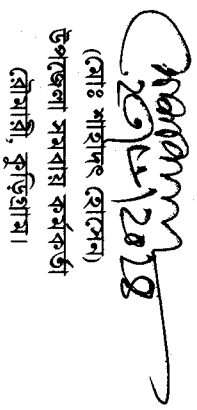 ২৭/৮/২০২৪
(মোঃ শাহাদৎ হোসেন)
উপজেলা সমবায় কর্মকর্তা
রৌমারী, কুড়িগ্রাম।